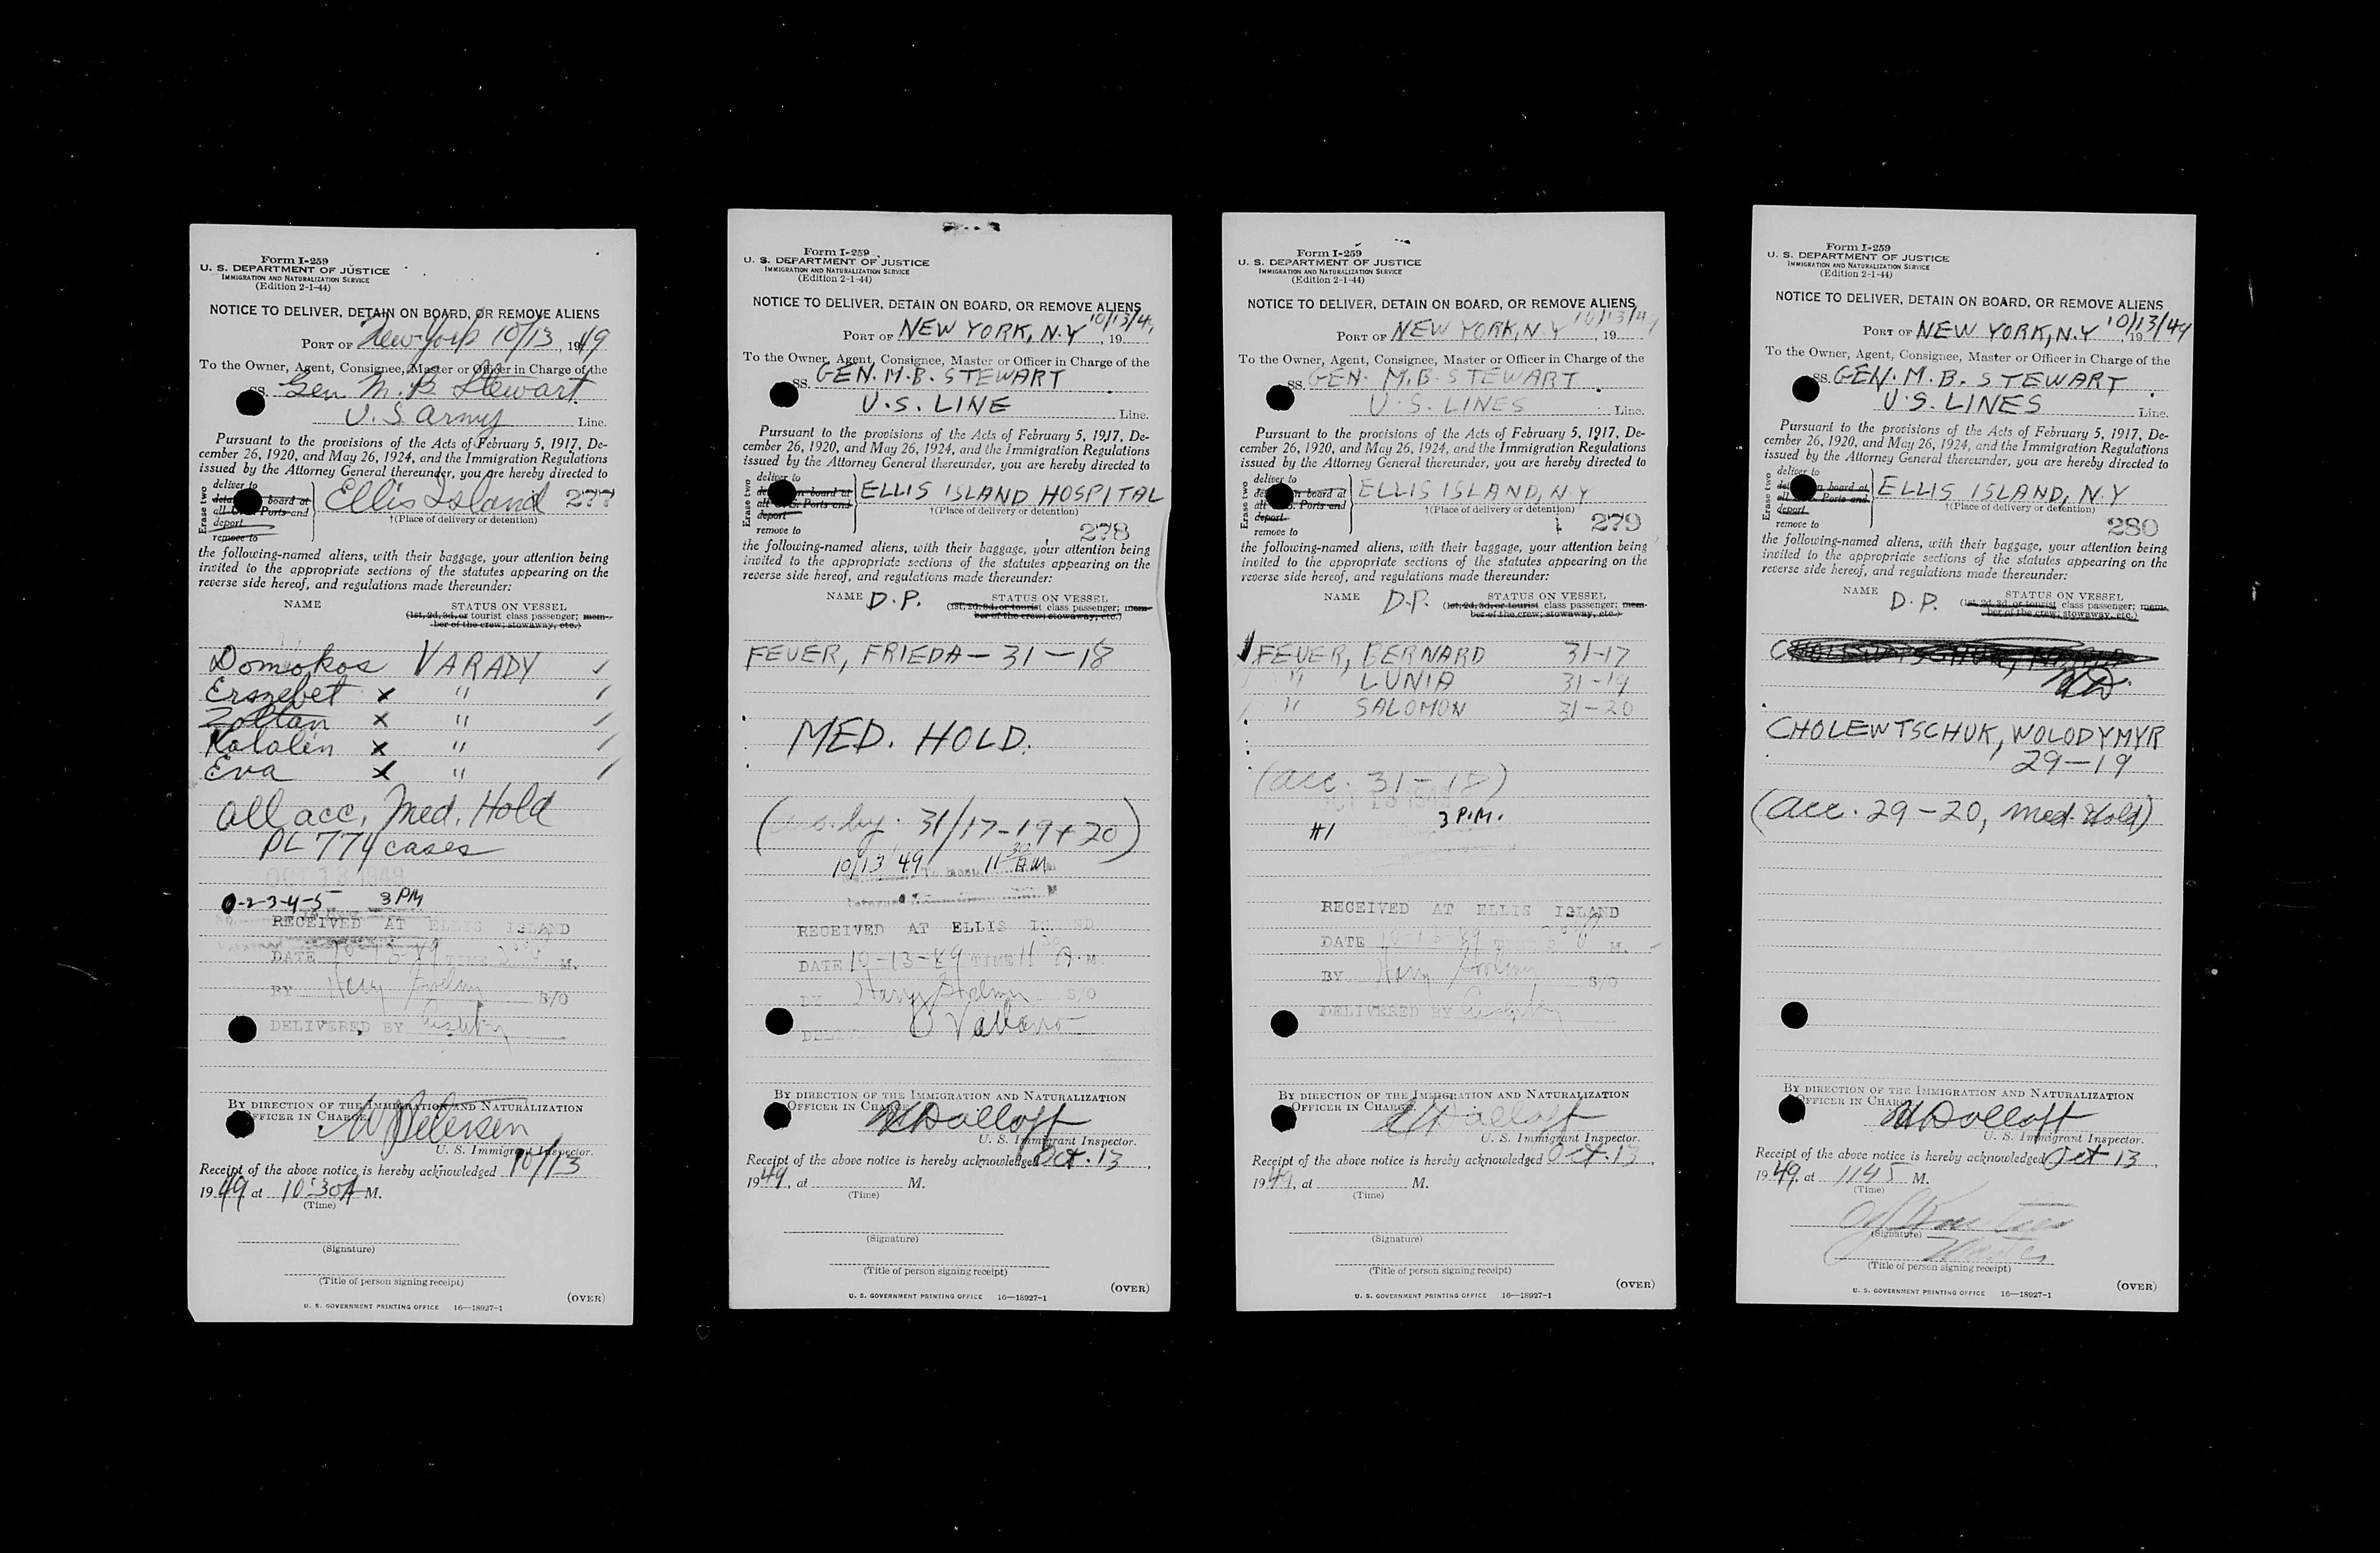 Form I-259
U. S. DEPARTMENT OF JUSTICE
IMMIGRATION AND NATURALIZATION SERVICE
(Edition 2-1-44)
NOTICE TO DELIVER, DETAIN ON BOARD, OR REMOVE ALIENS
PORT OF New York 10/13, 1949
To the Owner, Agent, Consignee, Master or Officer in Charge of the
SS. Gen. M. B. Stewart
U.S Army Line.
Pursuant to the provisions of the Acts of February 5, 1917, De-
cember 26, 1920, and May 26, 1924, and the Immigration Regulations
issued by the Attorney General thereunder, you are hereby directed to
Erase two
deliver to
board at
all Ports and
deport
remove to
Ellis Island 277
†(Place of delivery or detention)
the following-named aliens, with their baggage, your attention being
invited to the appropriate sections of the statutes appearing on the
reverse side hereof, and regulations made thereunder:
NAME STATUS ON VESSEL
(1st, 2d, 3d, or tourist class passenger; mem-
ber of the crew; stowaway, etc.)
Domokos VARADY ✓
Erszebet x " ✓
Zoltan x " ✓
Katalin x " ✓
Eva x " ✓
All acc. Med. Hold
PL 774 cases
OCT 13 1949
-2-3-4-5 3 PM
RECEIVED AT ELLIS ISLAND
DATE 10-13-49 TIME M.
BY Harry S/O
DELIVERED BY
BY DIRECTION OF THE IMMIGRATION AND NATURALIZATION
OFFICER IN CHARGE
Petersen
U. S. Immigrant Inspector.
Receipt of the above notice is hereby acknowledged 10/13
1949 at 10:30 A M.
(Time)
(Signature)
(Title of person signing receipt)
(OVER)
U. S. GOVERNMENT PRINTING OFFICE 16—18927-1
Form I-259
U. S. DEPARTMENT OF JUSTICE
IMMIGRATION AND NATURALIZATION SERVICE
(Edition 2-1-44)
NOTICE TO DELIVER, DETAIN ON BOARD, OR REMOVE ALIENS
PORT OF NEW YORK, N.Y 10/13/49, 19
To the Owner, Agent, Consignee, Master or Officer in Charge of the
SS. GEN. M.B. STEWART
U.S. LINE Line.
Pursuant to the provisions of the Acts of February 5, 1917, De-
cember 26, 1920, and May 26, 1924, and the Immigration Regulations
issued by the Attorney General thereunder, you are hereby directed to
Erase two
deliver to
on board at
all Ports and
deport
remove to
ELLIS ISLAND HOSPITAL
†(Place of delivery or detention)
278
the following-named aliens, with their baggage, your attention being
invited to the appropriate sections of the statutes appearing on the
reverse side hereof, and regulations made thereunder:
NAME D.P. STATUS ON VESSEL
(1st, 2d, 3d, or tourist class passenger; mem-
ber of the crew; stowaway, etc.)
FEUER, FRIEDA - 31 - 18
MED. HOLD.
by. 31/17-19+20)
10/13/49 11 30 AM
RECEIVED AT ELLIS ISLAND
DATE 10-13-49 TIME 11 A.M.
BY Harry S/O
BY DIRECTION OF THE IMMIGRATION AND NATURALIZATION
OFFICER IN CHARGE
Dolloff
U. S. Immigrant Inspector.
Receipt of the above notice is hereby acknowledged Oct. 13,
1949, at M.
(Time)
(Signature)
(Title of person signing receipt)
(OVER)
U. S. GOVERNMENT PRINTING OFFICE 16—18927-1
Form I-259
U. S. DEPARTMENT OF JUSTICE
IMMIGRATION AND NATURALIZATION SERVICE
(Edition 2-1-44)
NOTICE TO DELIVER, DETAIN ON BOARD, OR REMOVE ALIENS
PORT OF NEW YORK, N.Y 10/13/49, 19
To the Owner, Agent, Consignee, Master or Officer in Charge of the
SS. GEN. M.B. STEWART
U.S. LINES Line.
Pursuant to the provisions of the Acts of February 5, 1917, De-
cember 26, 1920, and May 26, 1924, and the Immigration Regulations
issued by the Attorney General thereunder, you are hereby directed to
Erase two
deliver to
board at
all Ports and
deport
remove to
ELLIS ISLAND, N.Y
†(Place of delivery or detention)
279
the following-named aliens, with their baggage, your attention being
invited to the appropriate sections of the statutes appearing on the
reverse side hereof, and regulations made thereunder:
NAME D.P. STATUS ON VESSEL
(1st, 2d, 3d, or tourist class passenger; mem-
ber of the crew; stowaway, etc.)
FEUER, BERNARD 31-17
" LUNIA 31-19
" SALOMON 31-20
(acc. 31-18)
#1 3 P.M.
RECEIVED AT ELLIS ISLAND
DATE 10-13-49 M.
BY Harry S/O
DELIVERED BY
BY DIRECTION OF THE IMMIGRATION AND NATURALIZATION
OFFICER IN CHARGE
Dolloff
U. S. Immigrant Inspector.
Receipt of the above notice is hereby acknowledged Oct. 13,
1949, at M.
(Time)
(Signature)
(Title of person signing receipt)
(OVER)
U. S. GOVERNMENT PRINTING OFFICE 16—18927-1
Form I-259
U. S. DEPARTMENT OF JUSTICE
IMMIGRATION AND NATURALIZATION SERVICE
(Edition 2-1-44)
NOTICE TO DELIVER, DETAIN ON BOARD, OR REMOVE ALIENS
PORT OF NEW YORK, N.Y 10/13/49, 19
To the Owner, Agent, Consignee, Master or Officer in Charge of the
SS. GEN. M.B. STEWART
U.S. LINES Line.
Pursuant to the provisions of the Acts of February 5, 1917, De-
cember 26, 1920, and May 26, 1924, and the Immigration Regulations
issued by the Attorney General thereunder, you are hereby directed to
Erase two
deliver to
on board at
all Ports and
deport
remove to
ELLIS ISLAND, N.Y
†(Place of delivery or detention)
280
the following-named aliens, with their baggage, your attention being
invited to the appropriate sections of the statutes appearing on the
reverse side hereof, and regulations made thereunder:
NAME D.P. STATUS ON VESSEL
(1st, 2d, 3d, or tourist class passenger; mem-
ber of the crew; stowaway, etc.)
CHOLEWTSCHUK, WOLODYMYR
29-19
(acc. 29-20, med. Hold)
BY DIRECTION OF THE IMMIGRATION AND NATURALIZATION
OFFICER IN CHARGE
Dolloff
U. S. Immigrant Inspector.
Receipt of the above notice is hereby acknowledged Oct 13,
1949, at 1145 M.
(Time)
(Signature)
(Title of person signing receipt)
(OVER)
U. S. GOVERNMENT PRINTING OFFICE 16—18927-1